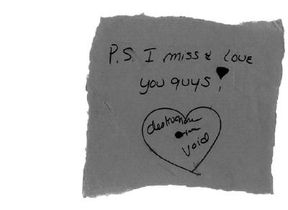 P.S I miss & love
you guys!
void